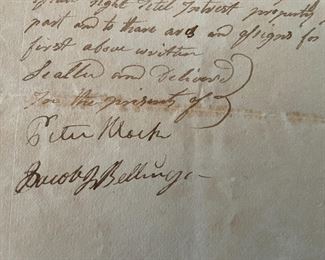 right Titel Interest property
part and to thare ars and asigns for
first above written
Sealled and Delivered
In the presents of
Peter Mock
Jacob Bellinger